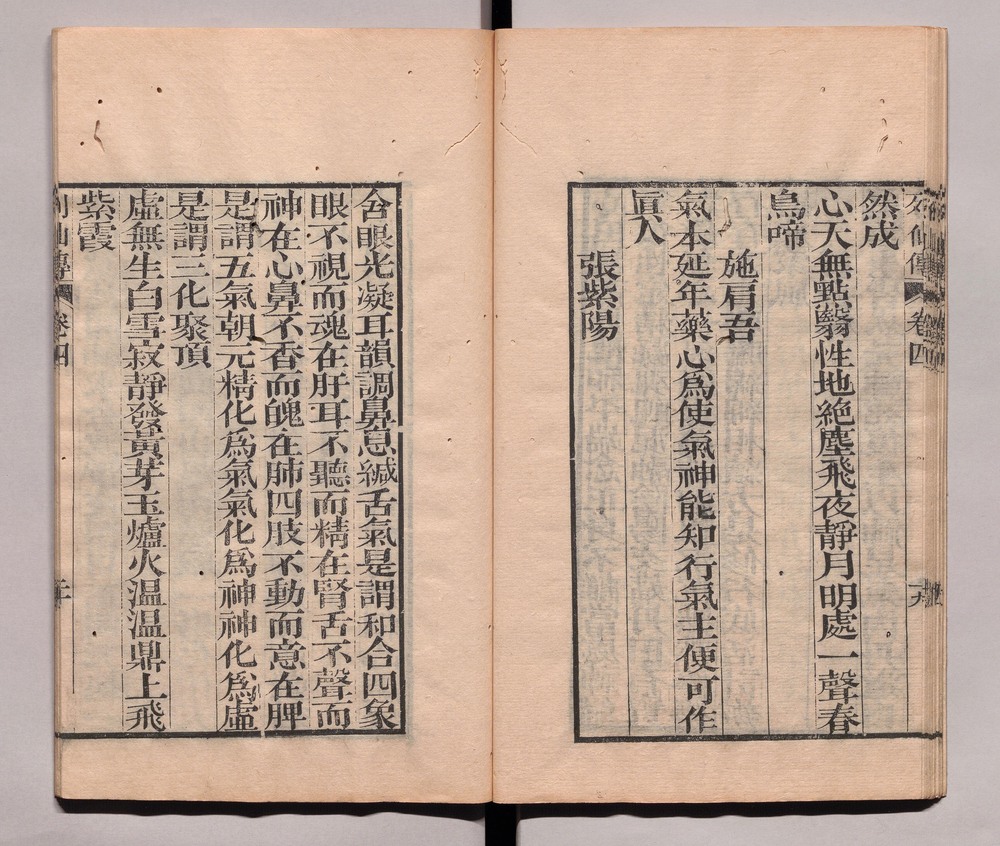 仙傳 卷四
然成
心天無點翳性地絶塵飛夜靜月明處一聲春
鳥啼
施肩吾
氣本延年藥心爲使氣神能知行氣主便可作
眞人
張紫陽
含眼光凝耳韻調鼻息緘舌氣是謂和合四象
眼不視而魂在肝耳不聽而精在腎舌不聲而
神在心鼻不香而魄在肺四肢不動而意在脾
是謂五氣朝元精化爲氣氣化爲神神化爲虛
是謂三化聚頂
虛無生白雪寂靜發黃芽玉爐火温温鼎上飛
紫霞
仙傳 卷四